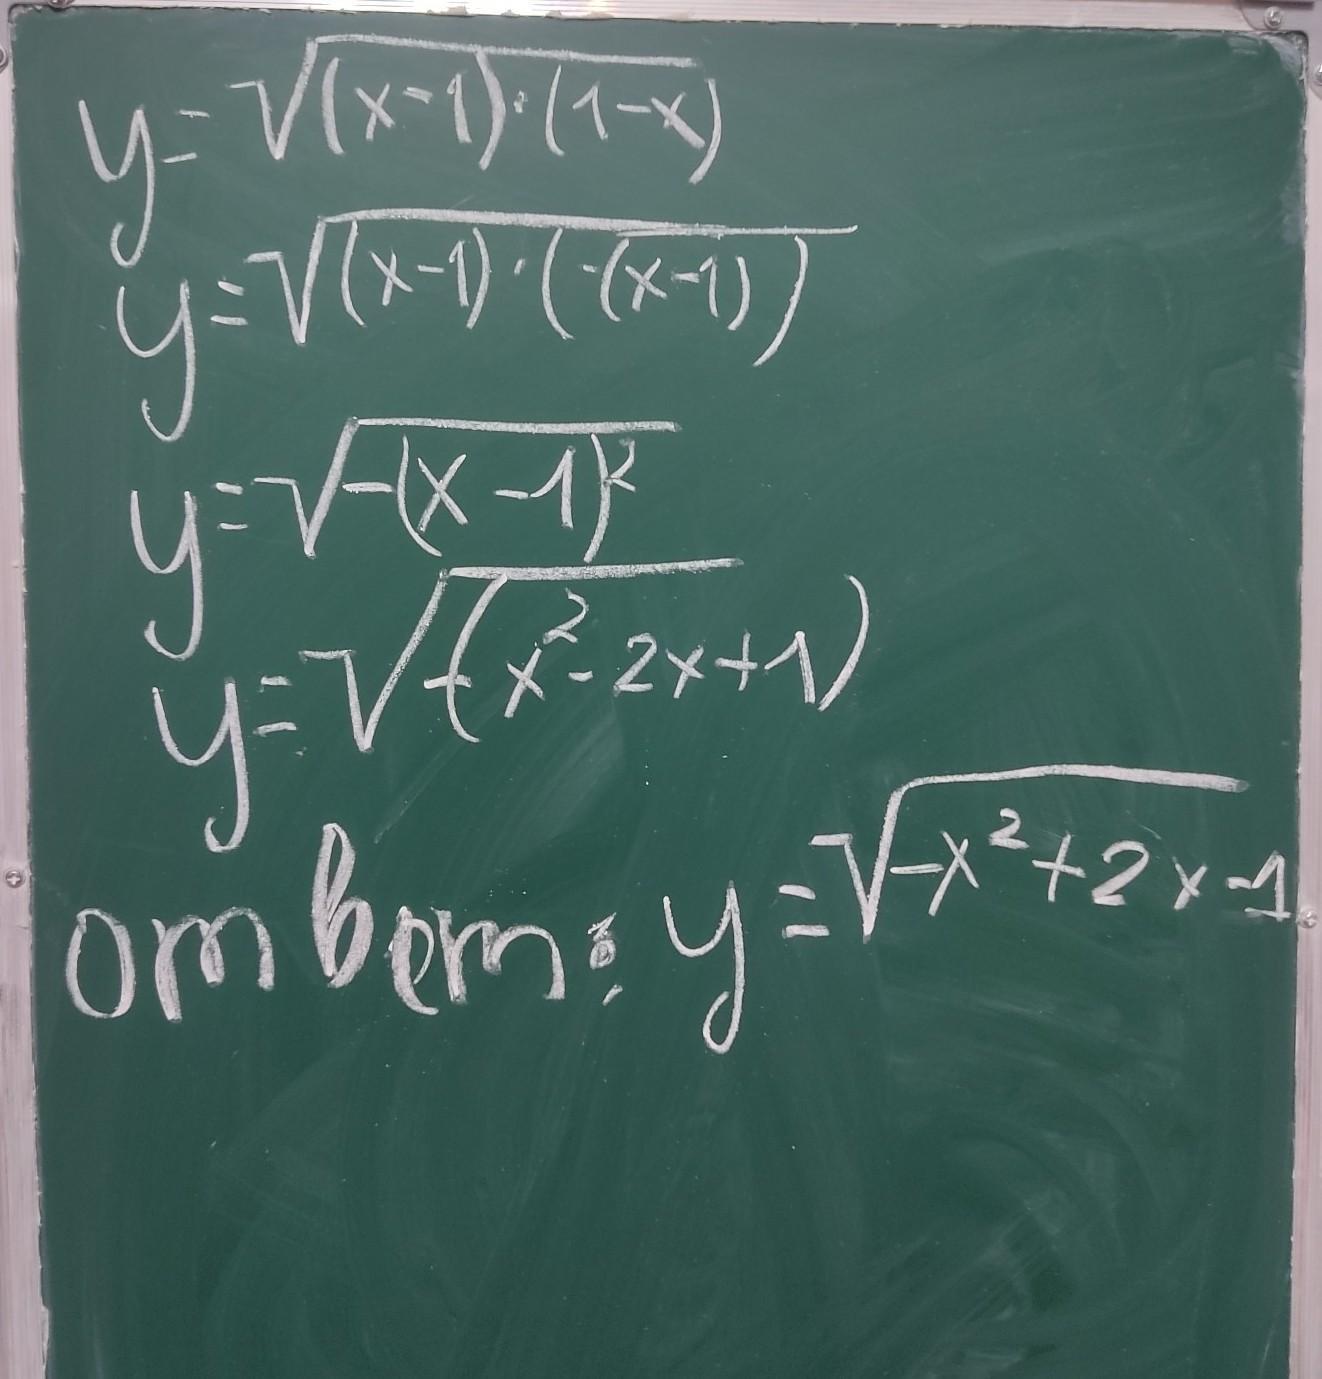 y=√(x-1)·(1-x)
y=√(x-1)·(-(x-1))
y=√-(x-1)²
y=√-(x²-2x+1)
ответ: y=√-x²+2x-1